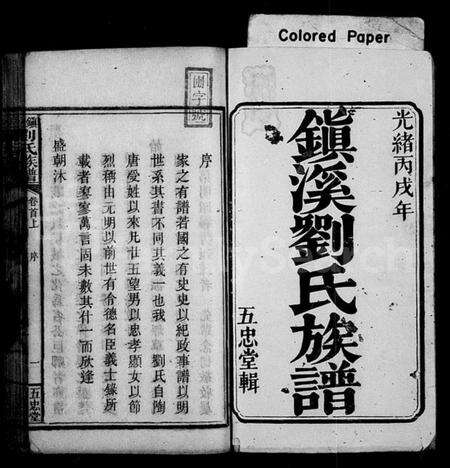 Colored Paper
光緒丙戌年
鎮溪劉氏族譜
五忠堂輯
團字號
序
家之有譜若國之有史史以紀政事譜以明
世系其書不同其義一也我 劉氏自陶
唐受姓以來凡廿五望男以忠孝顯女以節
烈稱由元明以前世有俻德名臣義士緣所
載者寥寥萬言固未數其什一而欣逢
盛朝沐
鎮溪劉氏族譜
卷首上
序
一
五忠堂